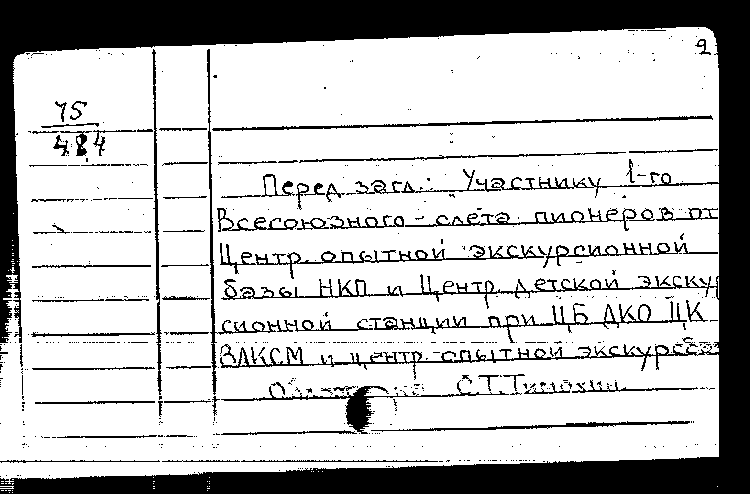 2
75
484
Перед загл.: Участнику 1-го
Всесоюзного слета пионеров от
Центр. опытной экскурсионной
базы НКП и Центр. детской экскур
сионной станции при ЦБ ДКО ЦК
ВЛКСМ и центр. опытной
С.Т.Тимохин